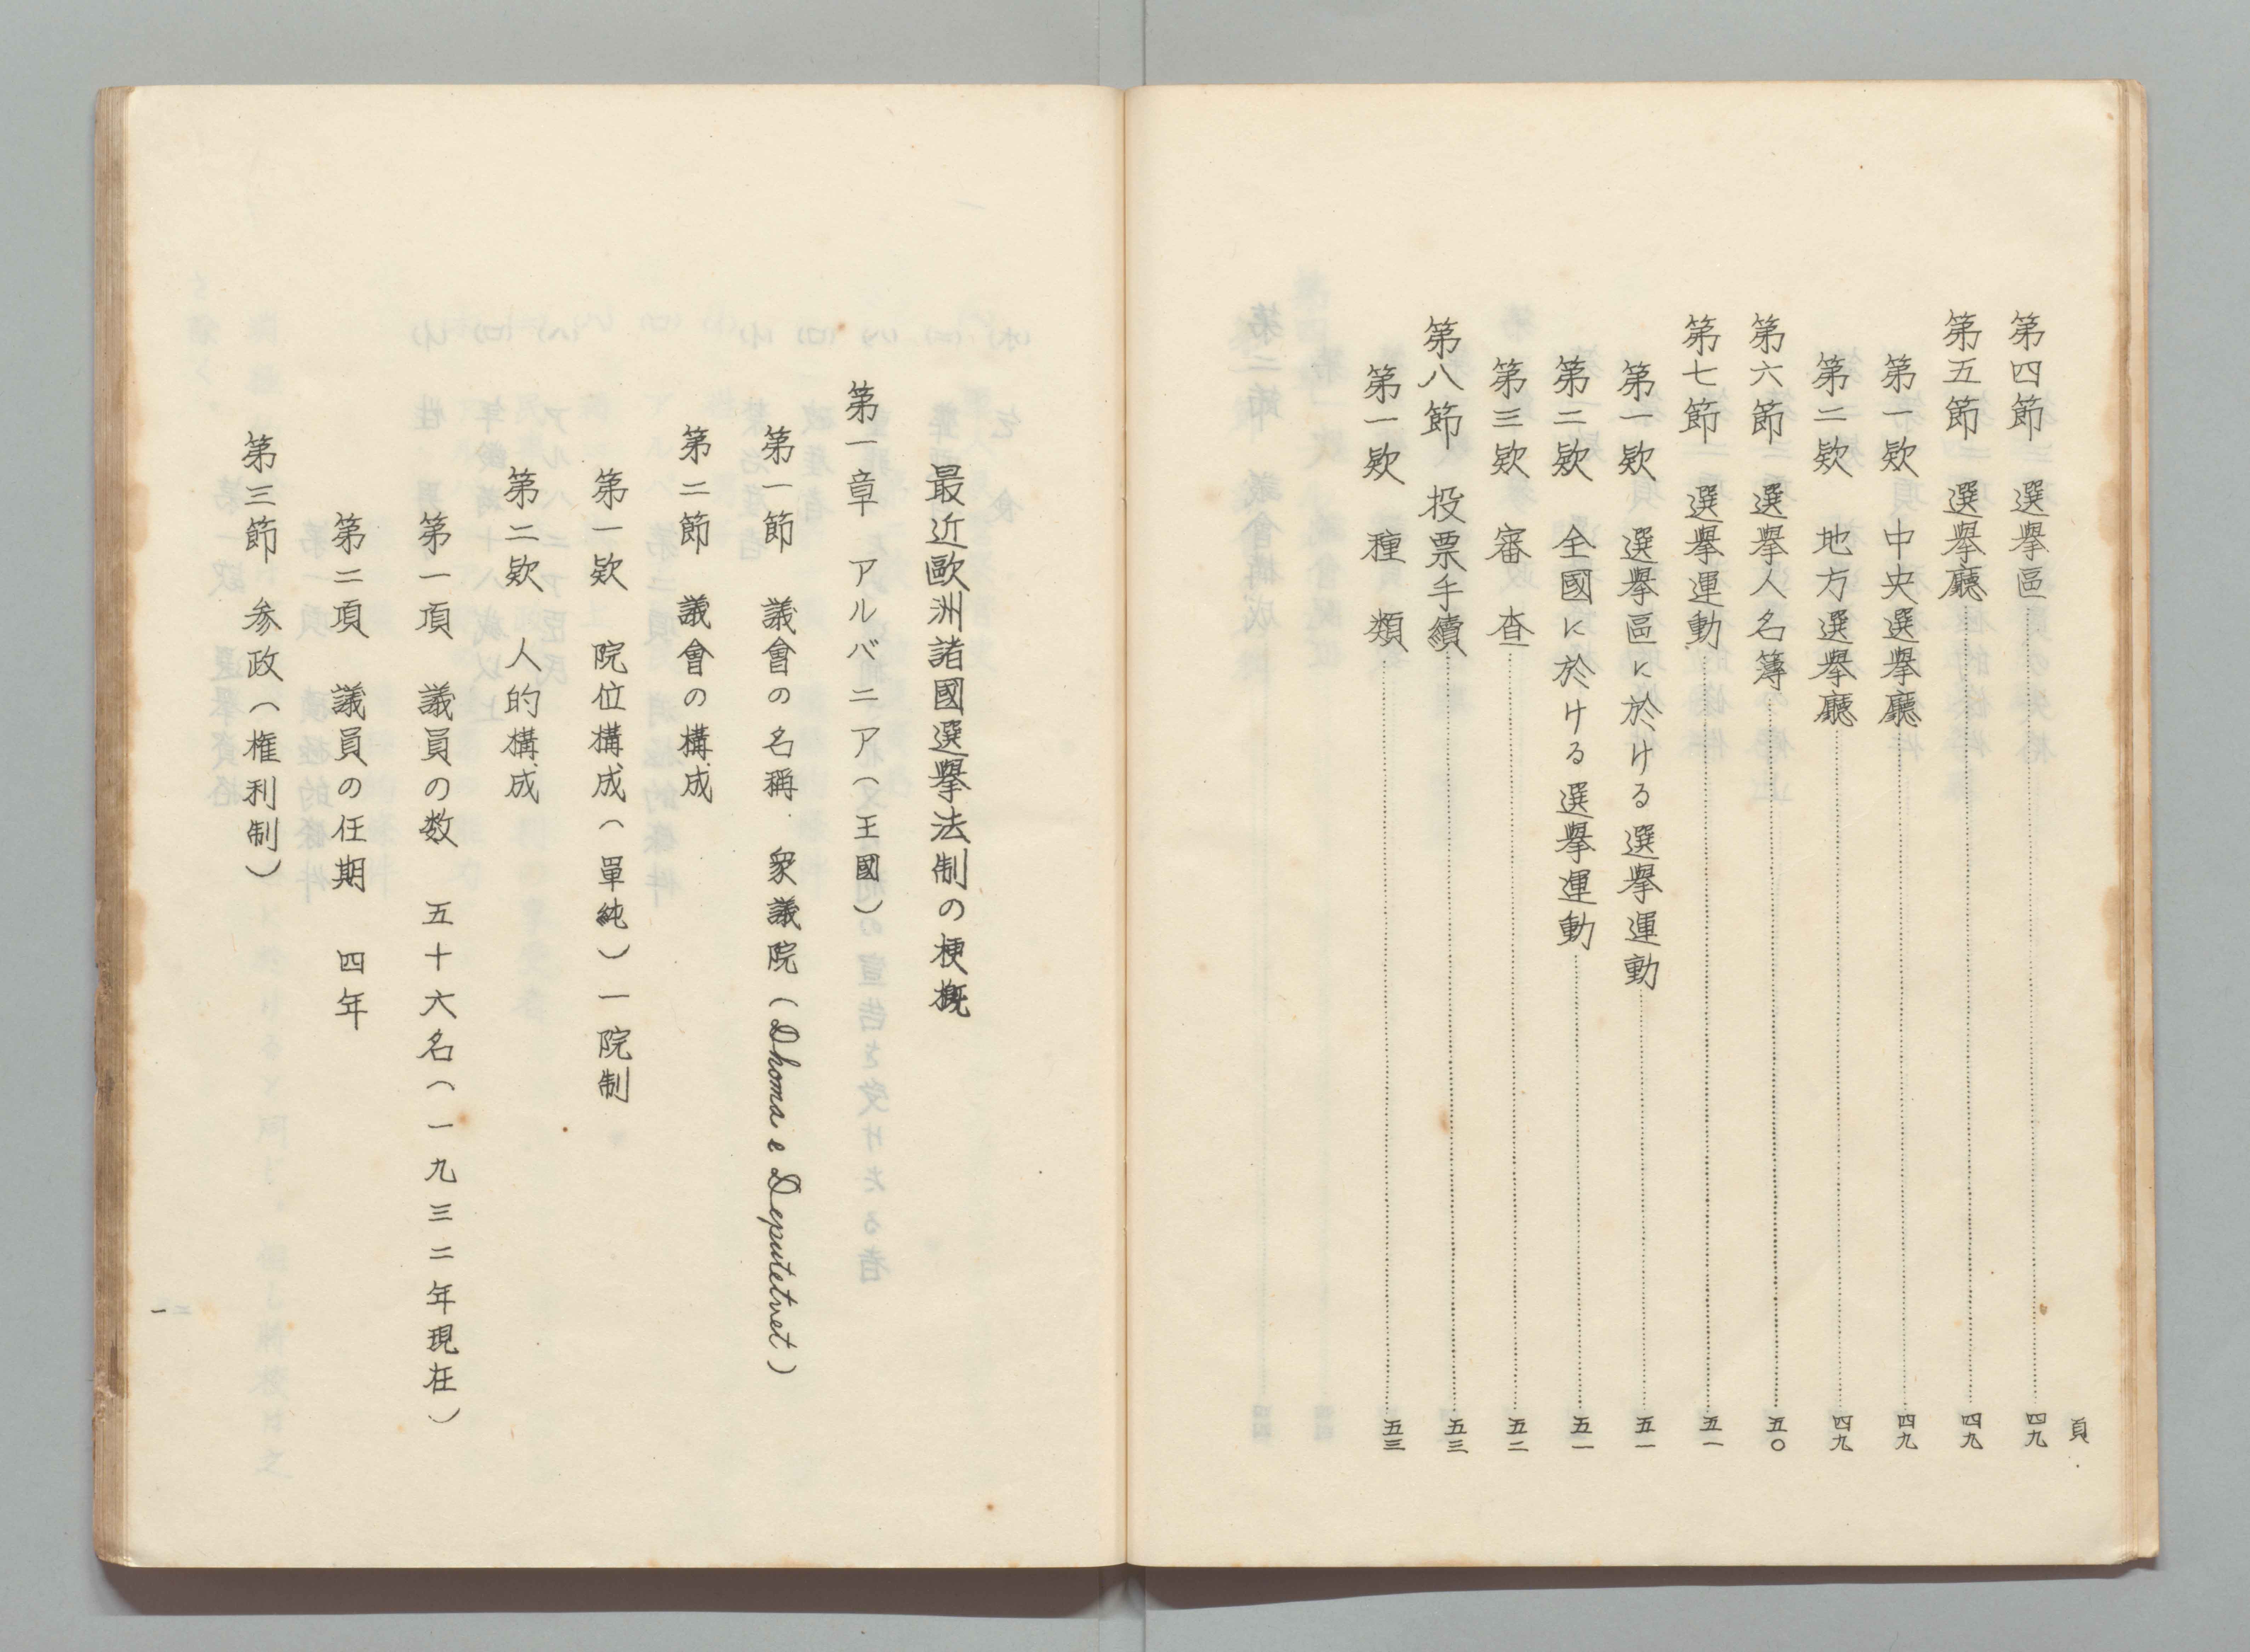 頁
第四節 選擧區……四九
第五節 選擧廳……四九
第一欵 中央選擧廳……四九
第二欵 地方選擧廳……四九
第六節 選擧人名簿……五〇
第七節 選擧運動……五一
第一欵 選擧區に於ける選擧運動……五一
第二欵 全國に於ける選擧運動……五一
第三欵 審査……五二
第八節 投票手續……五三
第一欵 種類……五三
最近歐洲諸國選擧法制の梗概
第一章 アルバニア(王國)
第一節 議會の名稱 衆議院(Dhoma e Deputetvet)
第二節 議會の構成
第一欵 院位構成(單純)一院制
第二欵 人的構成
第一項 議員の数 五十六名(一九三二年現在)
第二項 議員の任期 四年
第三節 参政(権利制)
一